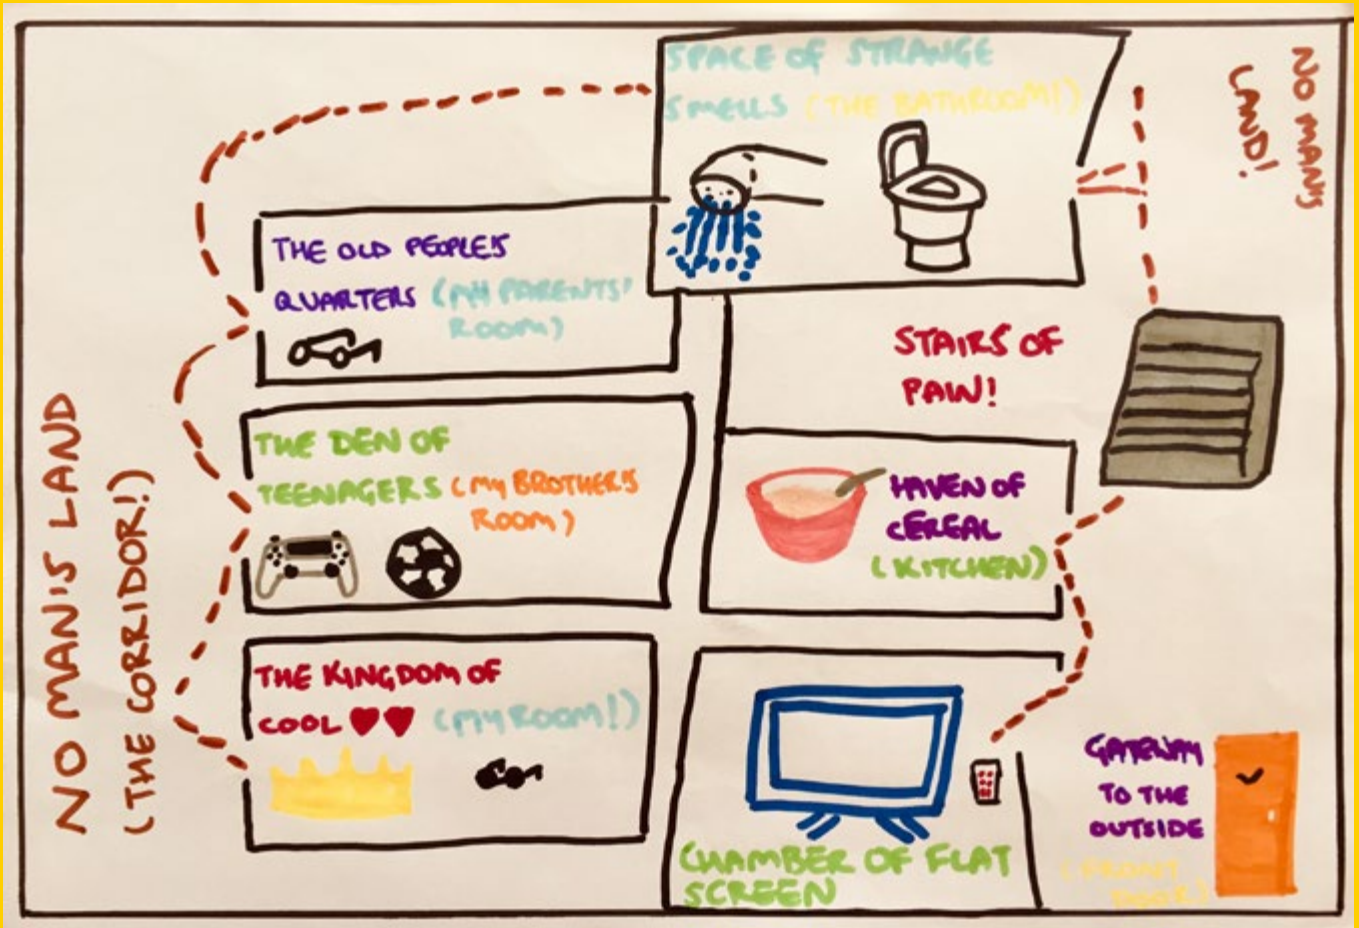 SPACE OF STRANGE
SMELLS (THE BATHROOM!)
NO MAN'S
LAND!
THE OLD PEOPLE'S
QUARTERS (MY PARENTS'
ROOM)
STAIRS OF
PAIN!
THE DEN OF
TEENAGERS (MY BROTHER'S
ROOM)
HAVEN OF
CEREAL
(KITCHEN)
NO MAN'S LAND
(THE CORRIDOR!)
THE KINGDOM OF
COOL ♥♥ (MY ROOM!)
CHAMBER OF FLAT
SCREEN
GATEWAY
TO THE
OUTSIDE
(FRONT
DOOR)